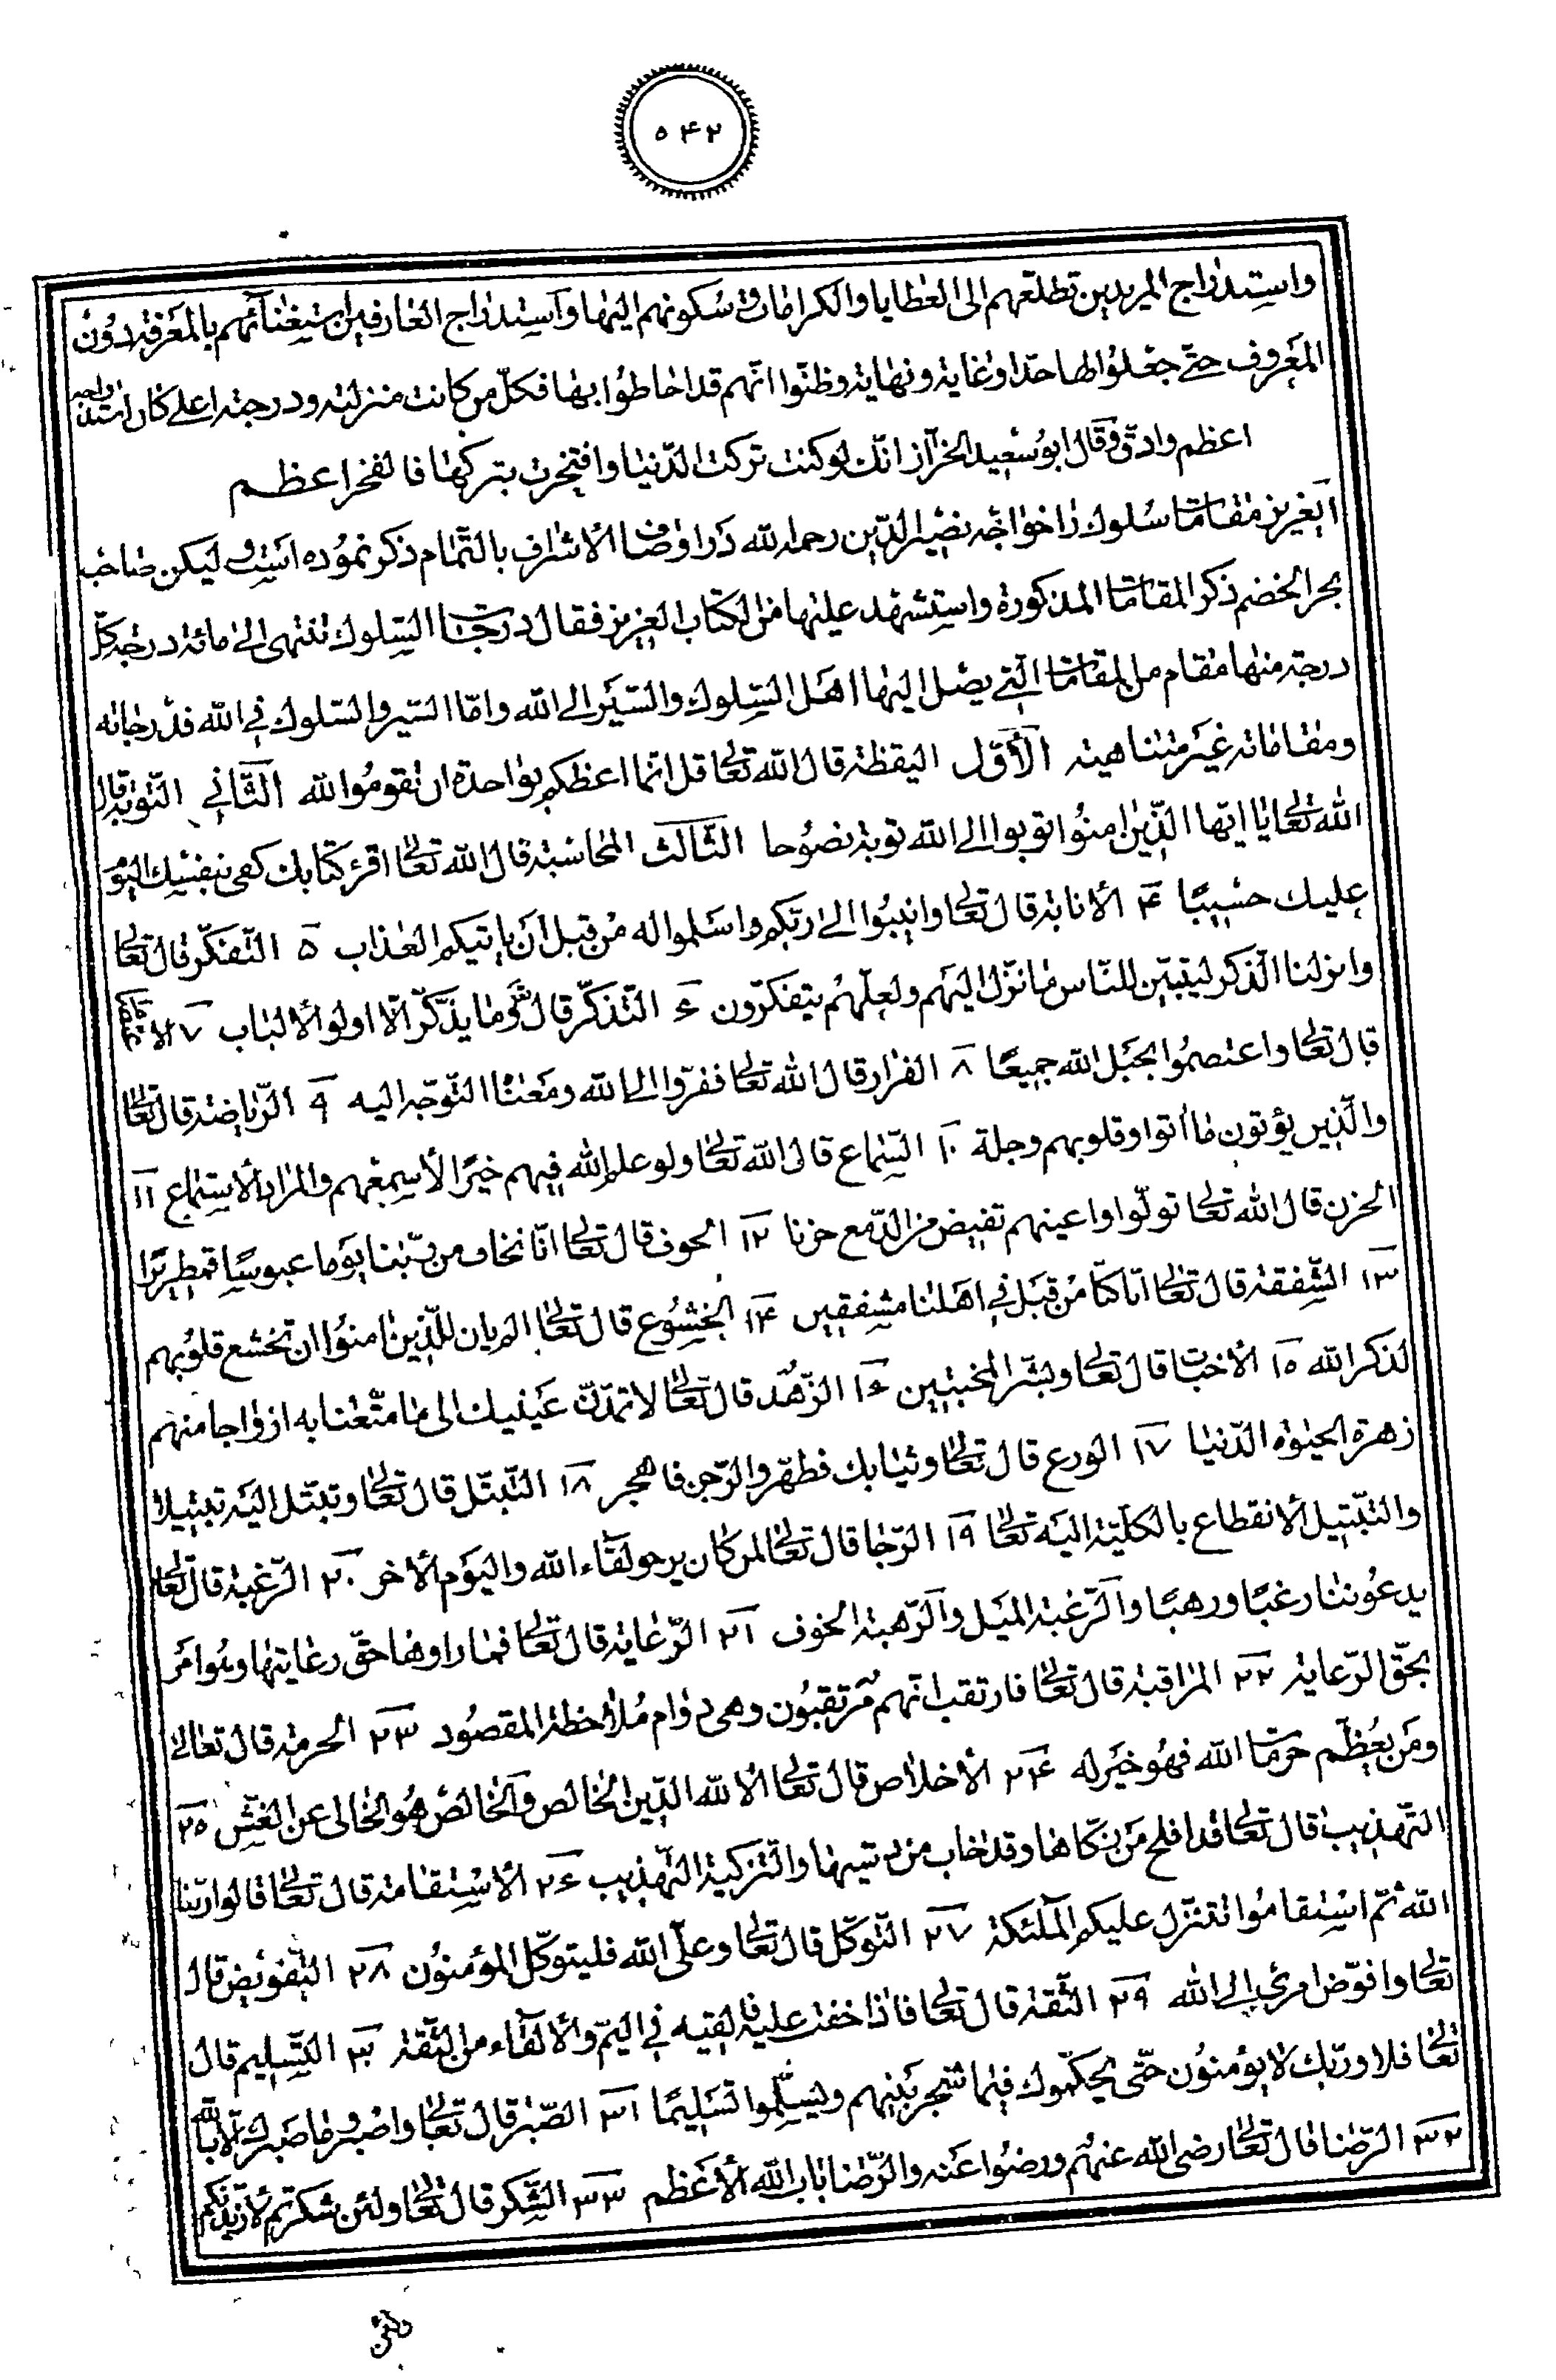 ۵۴۲
واستدراج المريدين تطلعهم الى العطايا والكرامات وسكونهم اليها وآستدراج العارفين استغنآئهم بالمعرفة دون
المعروف حتى جعلوا لها حدا وغاية ونهاية وظنّوا انّهم قد احاطوا بها فكلّ من كانت منزلته ودرجته اعلى كان استدراجه
اعظم وادقّ وقال ابو سعيد الخرّاز انّك لو كنت تركت الدّنيا وافتخرت بتركها فالفخر اعظم
ايعزيز مقامات سلوك را خواجه نصير الدّين رحمه الله در اوصاف الاشراف بالتّمام ذكر نموده است وليكن صاحب
بحر الخضم ذكر المقامات المذكورة واستشهد عليها من الكتاب العزيز فقال درجات السلوك تنتهى الى مائة درجة كلّ
درجة منها مقام من المقامات الّتي يصل اليها اهل السّلوك والسّير الى الله وامّا السّير والسّلوك في الله فدرجاته
ومقاماته غير متناهية الأوّل اليقظة قال الله تعالى قل انّما اعظكم بواحدة ان تقوموا لله الثّاني التّوبة قال
الله تعالى يا ايّها الّذين امنوا توبوا الى الله توبة نصوحا الثّالث المحاسبة قال الله تعالى اقرء كتابك كفى بنفسك اليوم
عليك حسيبًا ۴ الأنابة قال تعالى وانيبوا الى ربّكم واسلموا له من قبل ان ياتيكم العذاب ۵ التّفكّر قال تعالى
وانزلنا الذّكر ليتبيّن للنّاس ما نزّل اليهم ولعلّهم يتفكّرون ۶ التّذكّر قال تعالى وما يذّكّر الّا اولو الألباب ۷ الاعتصام
قال تعالى واعتصموا بحبل الله جميعًا ۸ الفرار قال الله تعالى ففرّوا الى الله ومعناه التّوجّه اليه ۹ الرّياضة قال تعالى
والّذين يؤتون ما اتوا وقلوبهم وجلة ۱۰ السّماع قال الله تعالى ولو علم الله فيهم خيرًا لأسمعهم والمراد الأستماع ۱۱
الحزن قال الله تعالى تولّوا واعينهم تفيض من الدّمع حزنا ۱۲ الخوف قال تعالى انّا نخاف من ربّنا يوما عبوسًا قمطريرًا
۱۳ الشّفقة قال تعالى انّا كنّا من قبل في اهلنا مشفقين ۱۴ الخشوع قال تعالى الم يان للّذين امنوا ان تخشع قلوبهم
لذكر الله ۱۵ الأخبات قال تعالى وبشّر المخبتين ۱۶ الزّهد قال تعالى لا تمدّنّ عينيك الى ما متّعنا به ازواجا منهم
زهرة الحيوة الدّنيا ۱۷ الورع قال تعالى وثيابك فطهّر والرّجز فاهجر ۱۸ التّبتّل قال تعالى وتبتّل اليه تبتيلا
والتّبتيل الأنقطاع بالكلّيّة اليه تعالى ۱۹ الرّجا قال تعالى لمن كان يرجو لقآء الله واليوم الأخر ۲۰ الرّغبة قال تعالى
يدعوننا رغبًا ورهبًا وآلرّغبة الميل وآلرّهبة الخوف ۲۱ الرّعاية قال تعالى فما راوها حقّ رعايتها وهو امر
بحقّ الرّعاية ۲۲ المراقبة قال تعالى فارتقب انّهم مرتقبون وهى دوام ملاحظة المقصود ۲۳ الحرمة قال تعالى
ومن يعظّم حرمات الله فهو خير له ۲۴ الأخلاص قال تعالى الا لله الدّين الخالص وآلخالص هو الخالى عن الغشّ ۲۵
التّهذيب قال تعالى قد افلح من زكّاها وقد خاب من دسّيها والتزكية التّهذيب ۲۶ الأستقامة قال تعالى قالوا ربّنا
الله ثمّ استقاموا تتنزّل عليكم الملئكة ۲۷ التّوكّل قال تعالى وعلى الله فليتوكّل المؤمنون ۲۸ التّفويض قال
تعالى وافوّض امري الى الله ۲۹ الثّقة قال تعالى فاذا خفت عليه فالقيه في اليمّ والألقآء من الثّقة ۳۰ التّسليم قال
تعالى فلا وربّك لا يؤمنون حتّى يحكّموك فيما شجر بينهم ويسلّموا تسليمًا ۳۱ الصّبر قال تعالى واصبر وما صبرك الّا بالله
۳۲ الرّضا قال تعالى رضى الله عنهم ورضوا عنه والرّضا باب الله الأعظم ۳۳ الشّكر قال تعالى ولئن شكرتم لأزيدنّكم